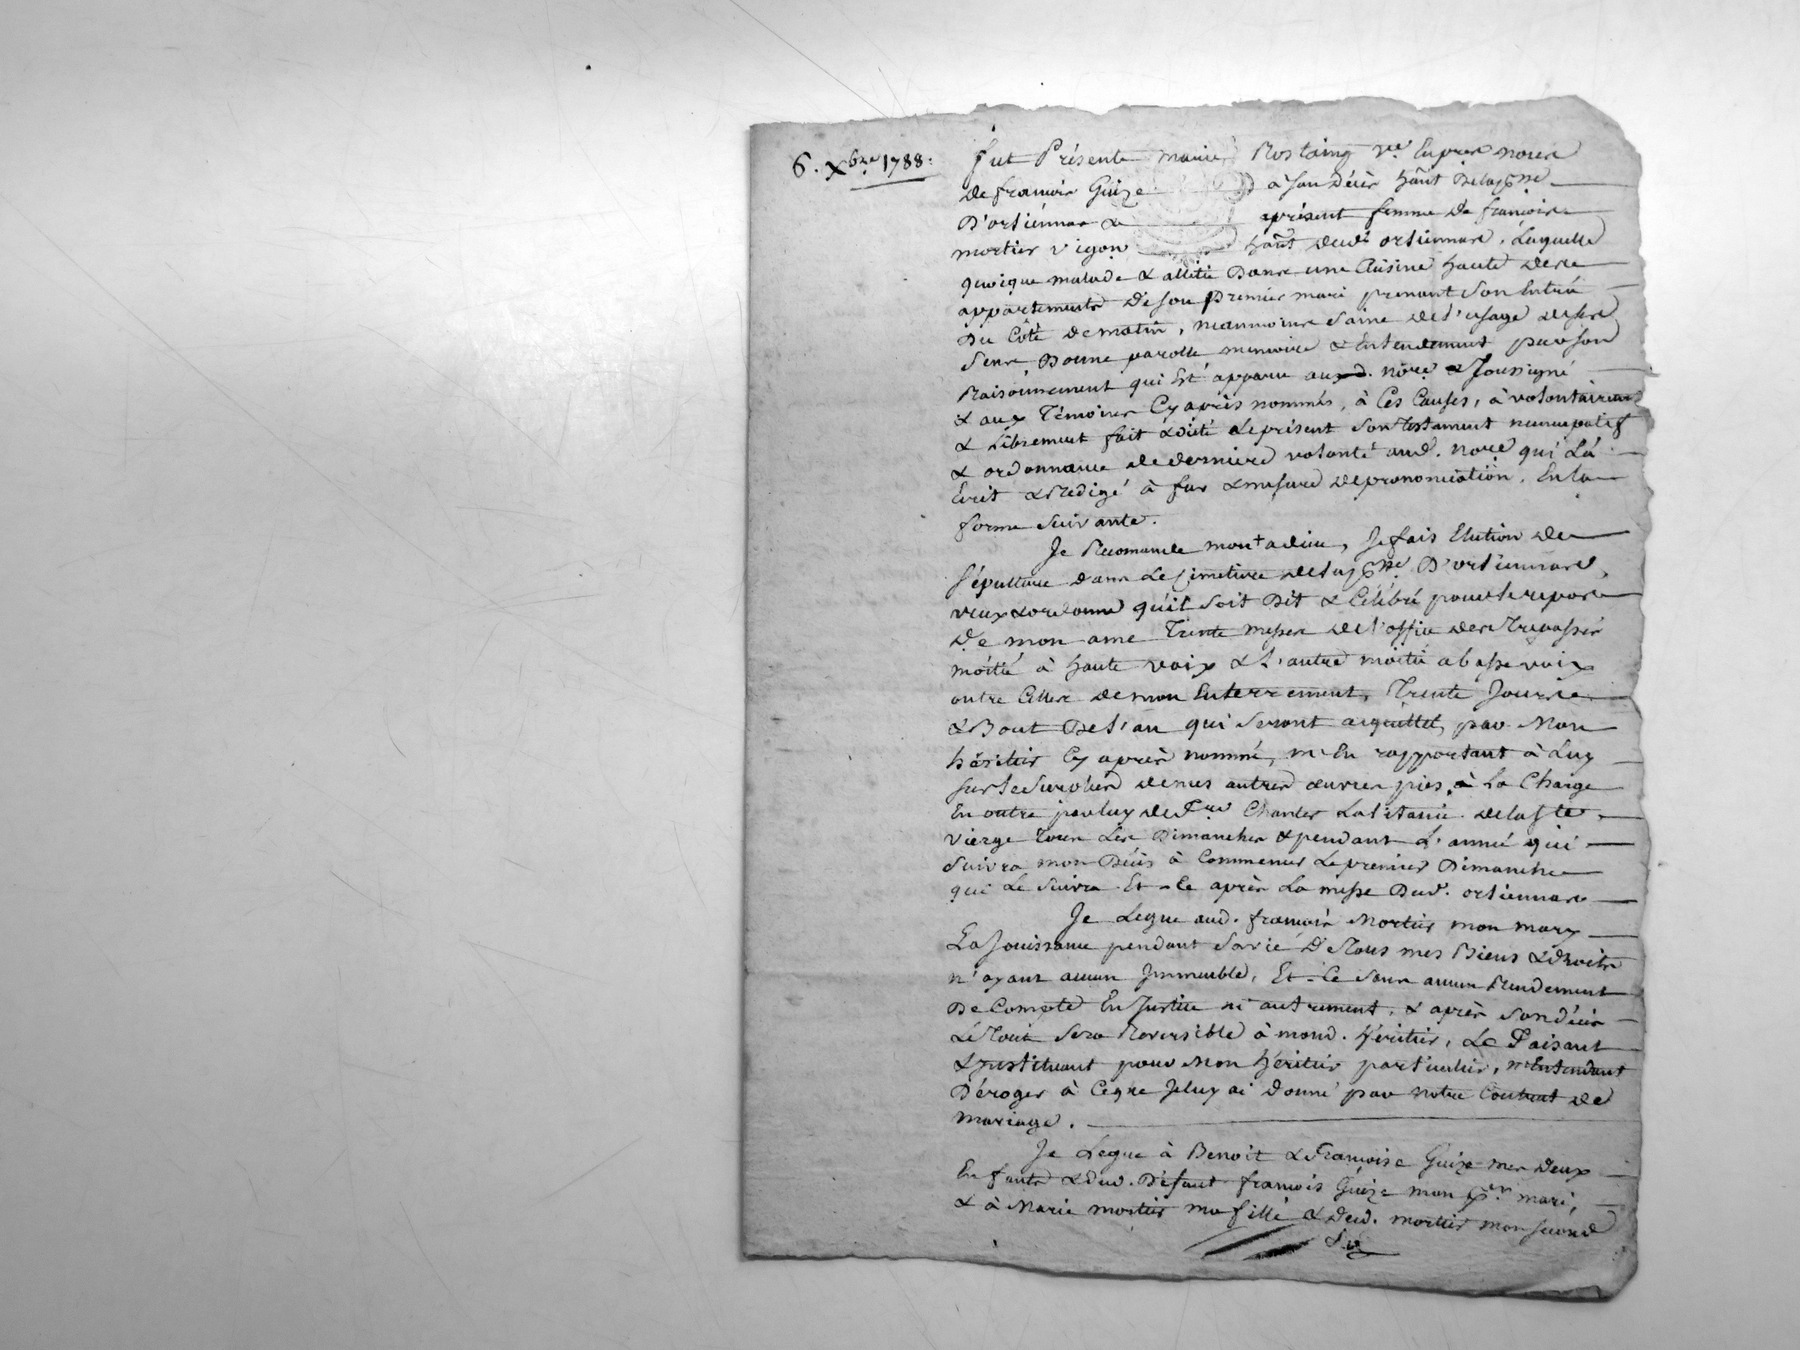 6. Xbre 1788.
fut Présente marie Rostaing ve. En pres noces
de francois Guize à son décès hant De la psse
D'ortiennar & aprésent femme de francois
mortier vigon hant dud. ortiennard. Laquelle
quoique malade & allitée Dans une Cuisine haute des
appartements de son premier mari prenant son Entrée
Du Côté de matin, neanmoins saine de l'usage de ses
sens, Bonne parolle memoire & Entendement par son
Raisonnement qui Est apparu aud. nore soussigné
& aux Témoins Cy après nommés, à Ces Causes, à volontairemt
& Librement fait & dicté le présent son testament nuncupatif
& ordonnance de derniere volonté aud. nore qui L'a
Ecrit & Rédigé à fur & mesure de prononciation. En la
forme suivante.
Je Recomande mon + a dieu, Je fais Election de
sépulture dans Le Cimetiere de la psse D'ortiennard,
veux & ordonne qu'il soit Dit & Célébré pour le repos
De mon ame Trente messes de l'office des Trepassés
moitié à haute voix & L'autre moitié a basse voix
outre Celles de mon Enterrement, Trente Jours
& Bout De l'an qui seront acquittés par Mon
héritier Cy après nommé, m'En rapportant à Luy
sur le surplus de mes autres œuvres pies, à La Charge
En outre par luy de faire Chanter La litanie de la ste.
vierge Tous Les Dimanches & pendant L'année qui
suivra mon Décès à Commencer Le premier Dimanche
qui Le suivra Et Ce après La messe Dud. ortiennard
Je Legue aud. francois Mortier mon mary
La Jouissance pendant sa vie De Tous mes Biens & droits
n'ayant aucun Immeuble, Et Ce sans aucun Rendement
De Compte En Justice ni autrement, & après son décès
Le Tout sera Reversible à mond. héritier, Le Faisant
& Instituant pour Mon héritier particulier, n'Entendant
Déroger à Ce que Je luy ai donné par notre Contrat de
mariage.
Je Legue à Benoit & Francoise Guize mes deux
Enfants & dud. Défunt francois Guize mon per. mari,
& à Marie mortier ma fille & dud. mortier mon second